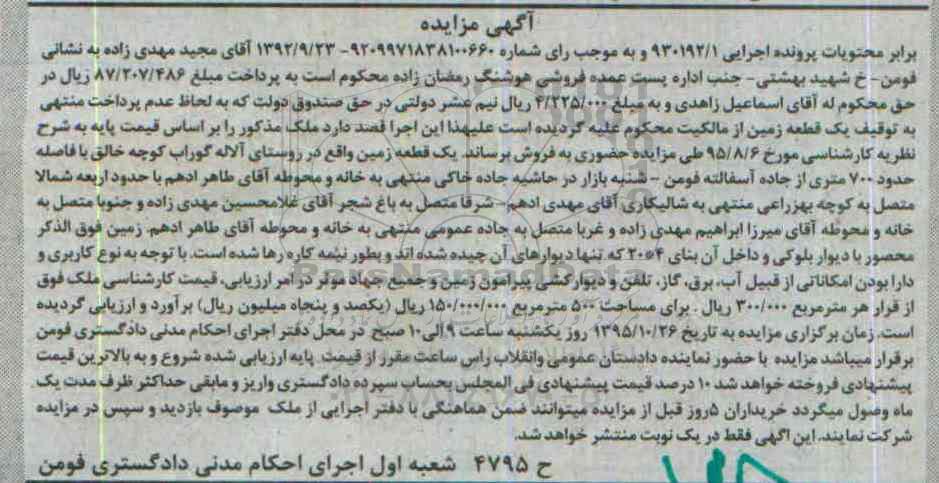 آگهی مزایده
برابر محتویات پرونده اجرایی ۹۳۰۱۹۲/۱ و به موجب رای شماره ۹۲۰۹۹۷۱۸۳۸۱۰۰۶۶۰- ۱۳۹۲/۹/۲۳ آقای مجید مهدی زاده به نشانی
فومن- خ شهید بهشتی- جنب اداره پست عمده فروشی هوشنگ رمضان زاده محکوم است به پرداخت مبلغ ۸۷/۲۰۷/۴۸۶ ریال در
حق محکوم له آقای اسماعیل زاهدی و به مبلغ ۴/۲۲۵/۰۰۰ ریال نیم عشر دولتی در حق صندوق دولت که به لحاظ عدم پرداخت منتهی
به توقیف یک قطعه زمین از مالکیت محکوم علیه گردیده است علیهذا این اجرا قصد دارد ملک مذکور را بر اساس قیمت پایه به شرح
نظریه کارشناسی مورخ ۹۵/۸/۶ طی مزایده حضوری به فروش برساند. یک قطعه زمین واقع در روستای آلاله گوراب کوچه خالق با فاصله
حدود ۷۰۰ متری از جاده آسفالته فومن - شنبه بازار در حاشیه جاده خاکی منتهی به خانه و محوطه آقای طاهر ادهم با حدود اربعه شمالا
متصل به کوچه بهزراعی منتهی به شالیکاری آقای مهدی ادهم- شرقا متصل به باغ شجر آقای غلامحسین مهدی زاده و جنوبا متصل به
خانه و محوطه آقای میرزا ابراهیم مهدی زاده و غربا متصل به جاده عمومی منتهی به خانه و محوطه آقای طاهر ادهم. زمین فوق الذکر
محصور با دیوار بلوکی و داخل آن بنای ۴*۲۰ که تنها دیوارهای آن چیده شده اند و بطور نیمه کاره رها شده است. با توجه به نوع کاربری و
دارا بودن امکاناتی از قبیل آب، برق، گاز، تلفن و دیوارکشی پیرامون زمین و جمیع جهاد موثر در امر ارزیابی، قیمت کارشناسی ملک فوق
از قرار هر مترمربع ۳۰۰/۰۰۰ ریال . برای مساحت ۵۰۰ مترمربع ۱۵۰/۰۰۰/۰۰۰ ریال (یکصد و پنجاه میلیون ریال) برآورد و ارزیابی گردیده
است. زمان برگزاری مزایده به تاریخ ۱۳۹۵/۱۰/۲۶ روز یکشنبه ساعت ۹ الی ۱۰ صبح در محل دفتر اجرای احکام مدنی دادگستری فومن
برقرار میباشد مزایده با حضور نماینده دادستان عمومی وانقلاب راس ساعت مقرر از قیمت پایه ارزیابی شده شروع و به بالاترین قیمت
پیشنهادی فروخته خواهد شد ۱۰ درصد قیمت پیشنهادی فی المجلس بحساب سپرده دادگستری واریز و مابقی حداکثر ظرف مدت یک
ماه وصول میگردد خریداران ۵روز قبل از مزایده میتوانند ضمن هماهنگی با دفتر اجرایی از ملک موصوف بازدید و سپس در مزایده
شرکت نمایند. این اگهی فقط در یک نوبت منتشر خواهد شد.
ح ۴۷۹۵ شعبه اول اجرای احکام مدنی دادگستری فومن
ParsNamadData